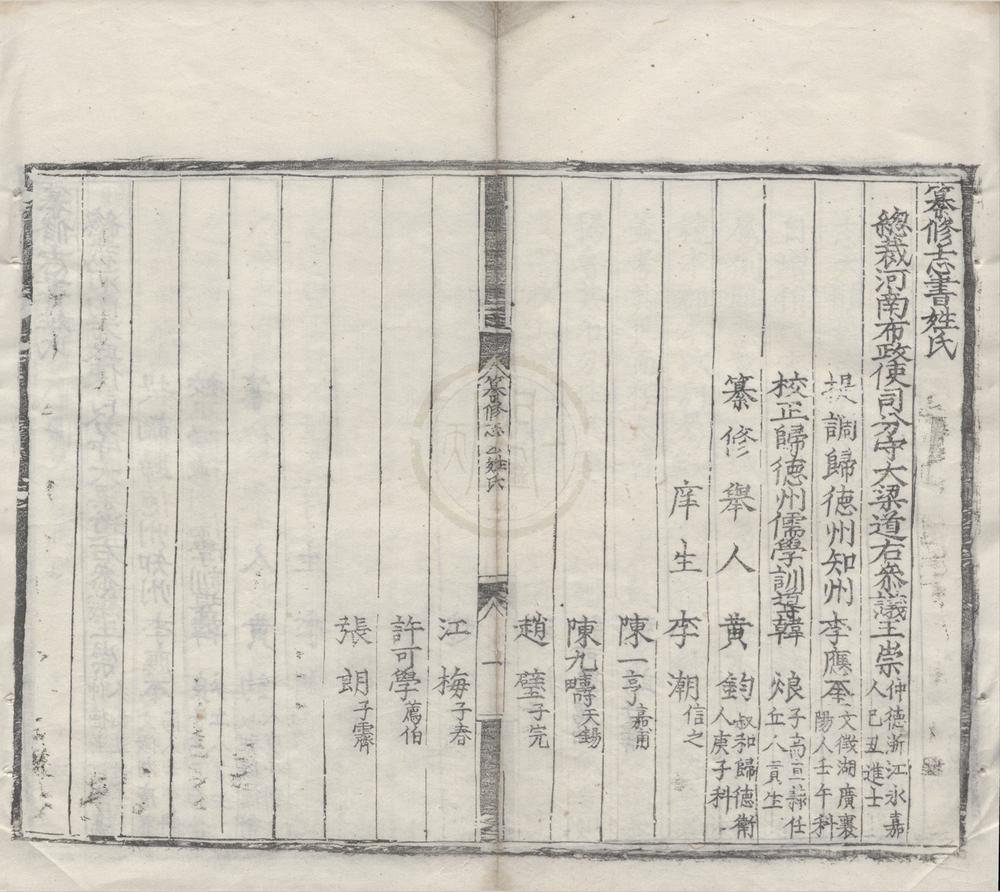 纂修志書姓氏
總裁河南布政使司分守大梁道右叅議王崇仲德浙江永嘉人己丑進士
提調歸德州知州李應奎文徵湖廣襄陽人壬午科
校正歸德州儒學訓導韓烺子高直隸任丘人貢生
纂修舉人黄鈞叔和歸德衛人庚子科
庠生李潮信之
陳一亨嘉甫
陳九疇天錫
趙璧子完
纂修志 姓氏
一
江梅子春
許可學薦伯
張朗子霽